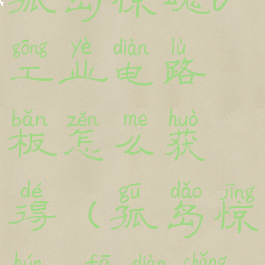 孤岛惊魂6
gōng yè diàn lù
工业电路
bǎn zěn me huò
板怎么获
dé gū dǎo jīng
得（孤岛惊